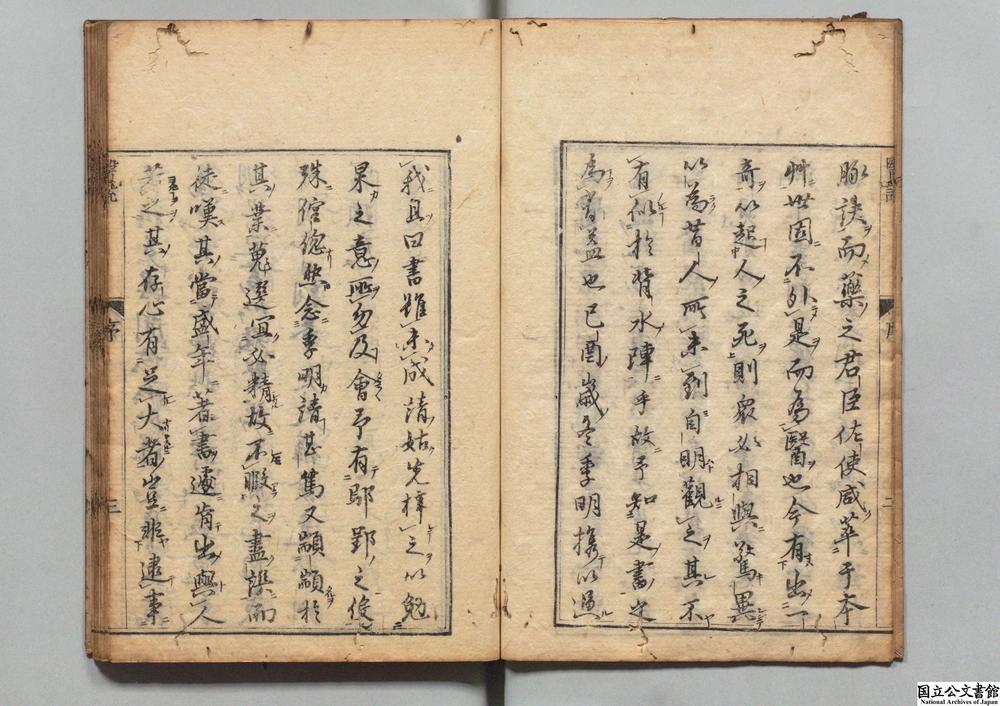 脉訣而藥之君臣佐使咸萃于本
艸世固不外是而為醫也今有出一
奇以起人之死則衆必相與驚異
以為昔人所未到自明觀之其不
有似於背水陣乎故予知是書定
為書益也己酉歲冬季明携以過
序
二
我且曰書雖未成請姑先梓之以勉
果之意匪勿及會予有鄞之役
殊倥傯然念季明請甚篤又顓顓於
其業蒐選宜必精故不暇之盡譔而
徒嘆其當盛年著書遽肯出與人
之其存心有足大者豈非達事
序
三
国立公文書館
National Archives of Japan